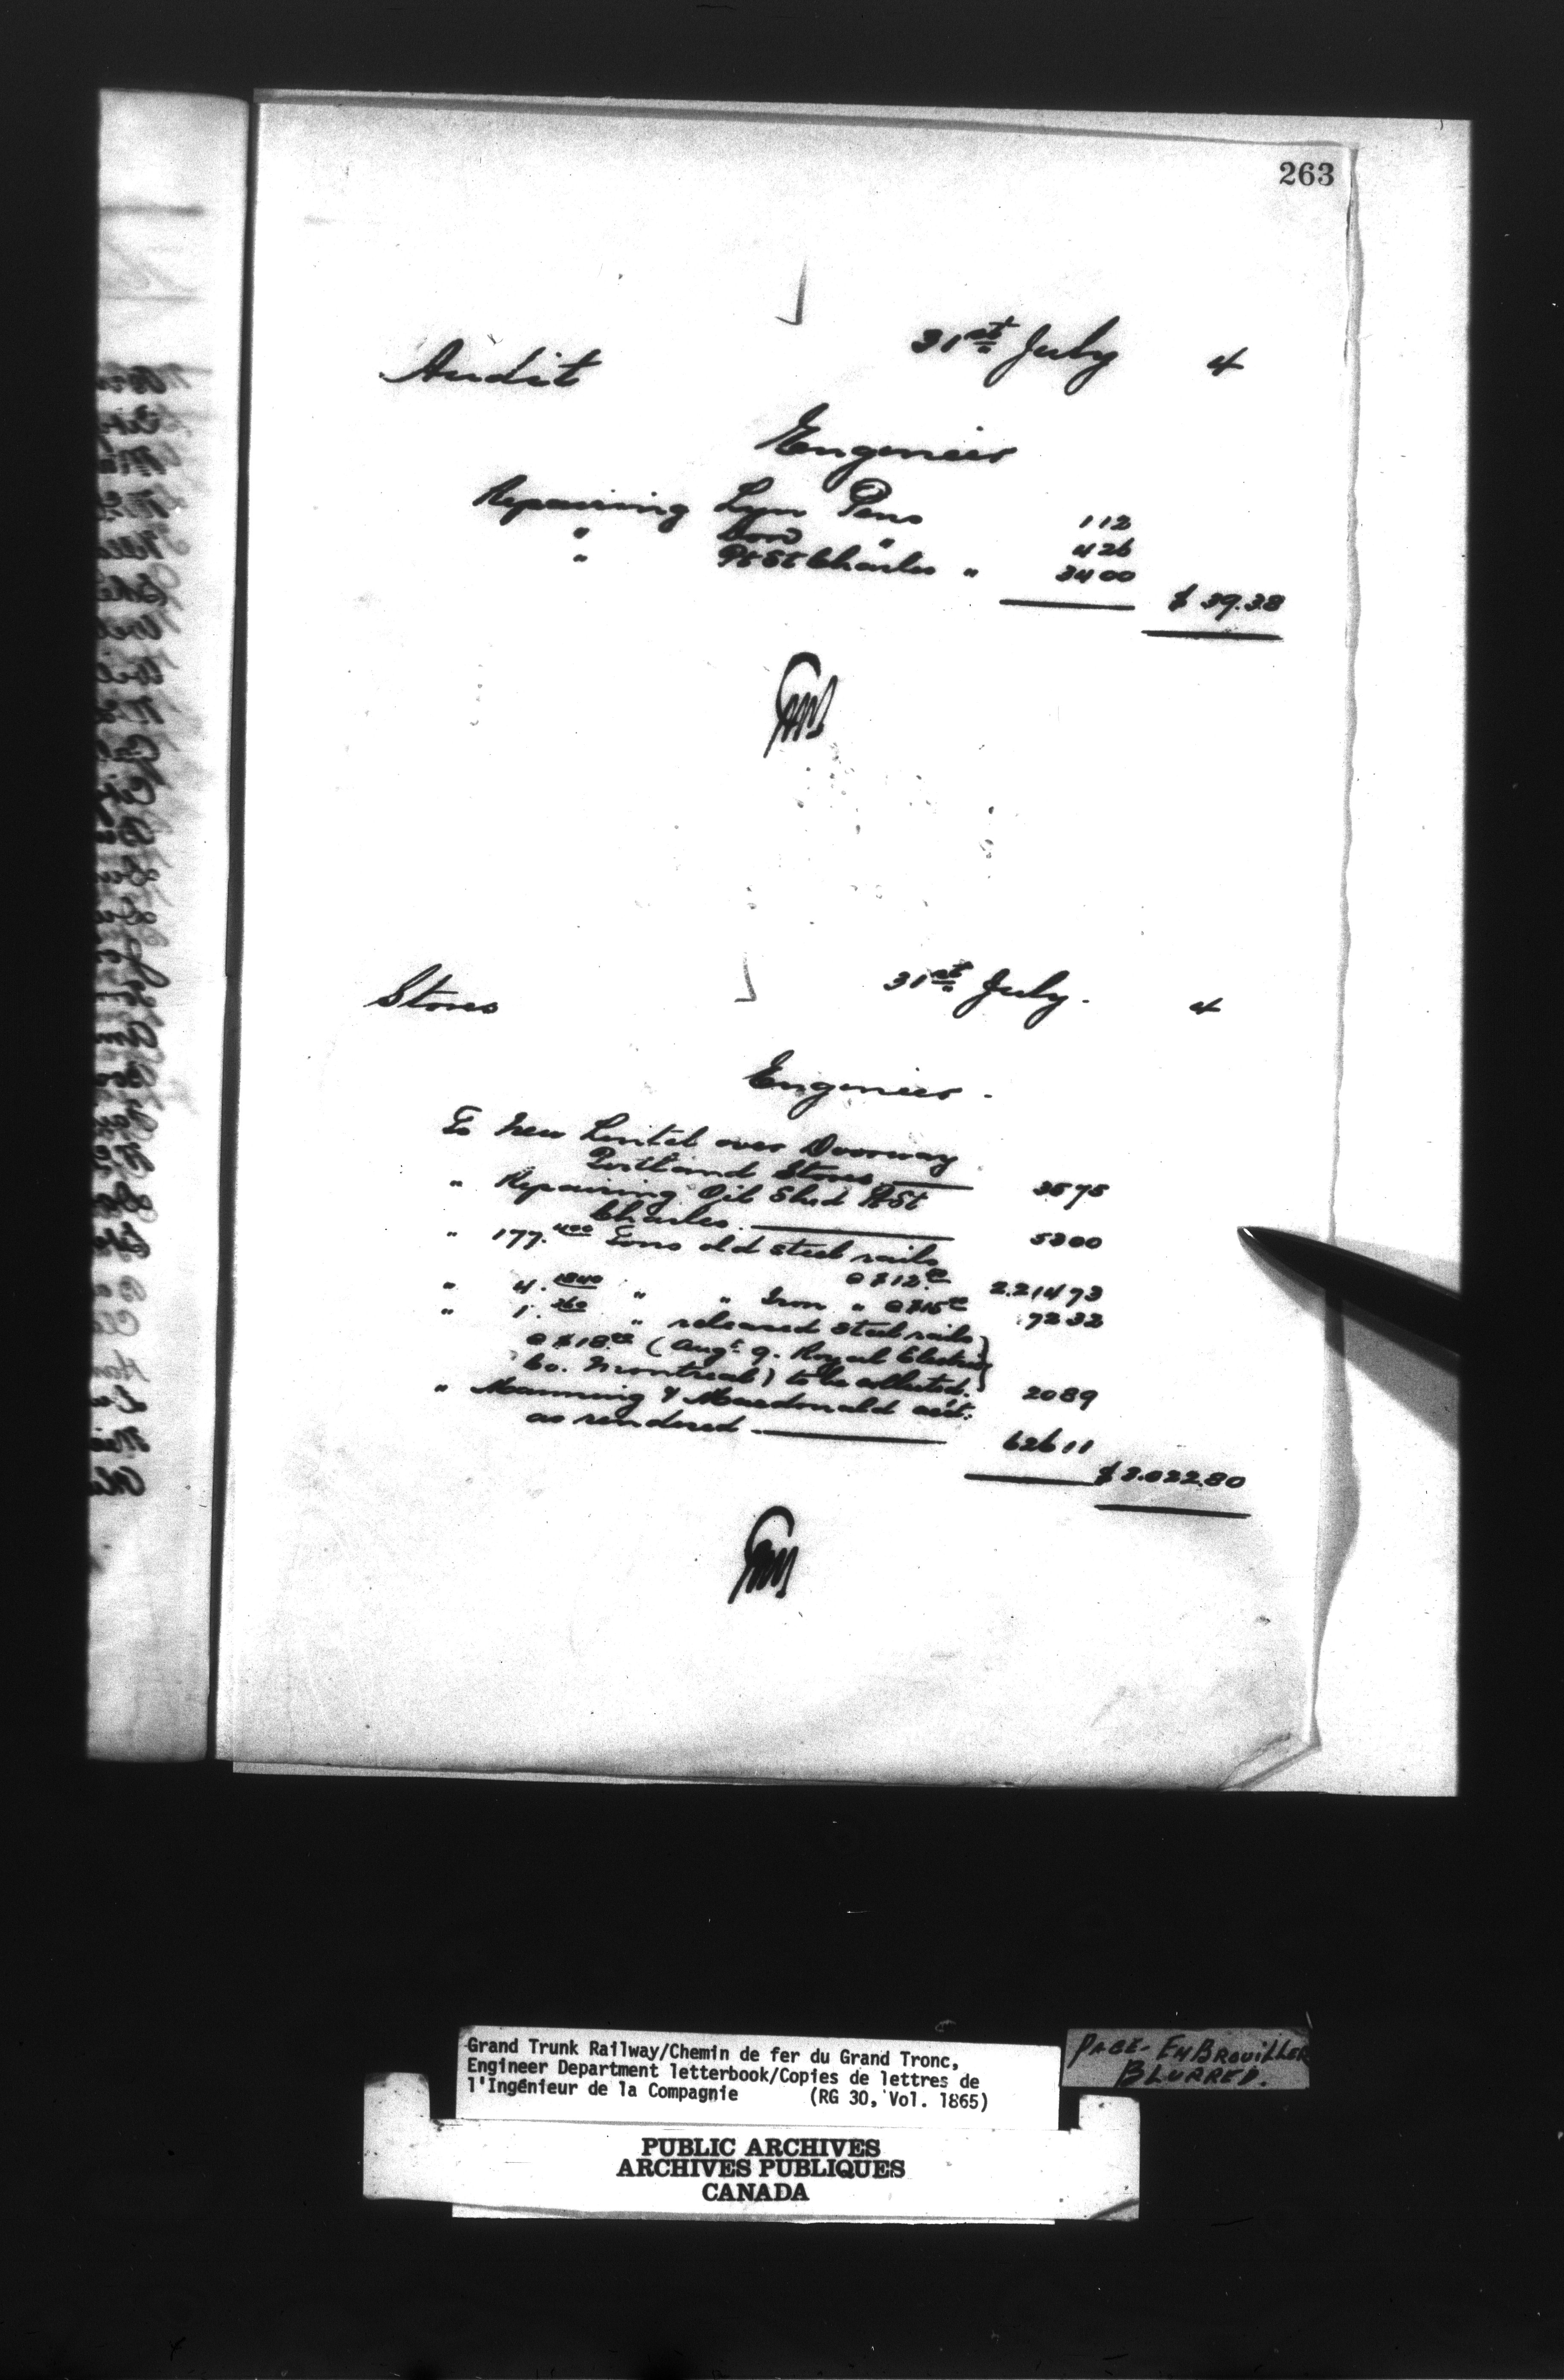 263
Audit 31st July 4
Engineer
Repairing Lyn Pens 112
" " 426
" Pt St Charles " 3400
$ 39.38
Stores 31st July. 4
Engineer.
To New Lintel over Doorway
Portland Stores 3575
" Repairing Oil Shed Pt St
Charles. 5300
" 177.400 Tons old steel rails
@ $12.50 2.21473
" 4.1840 " " Iron " @ $15.00 7232
" 1.360 " released steel rails
@ $18.00 (Augt 9. Royal Electric
Co. Montreal) to be collected. 2089
" Manning & Macdonald acct.
as rendered 62611
$ 3.022.80
Grand Trunk Railway/Chemin de fer du Grand Tronc,
Engineer Department letterbook/Copies de lettres de
l'Ingénieur de la Compagnie (RG 30, Vol. 1865)
PAGE- EN BROUILLER
BLURRED.
PUBLIC ARCHIVES
ARCHIVES PUBLIQUES
CANADA